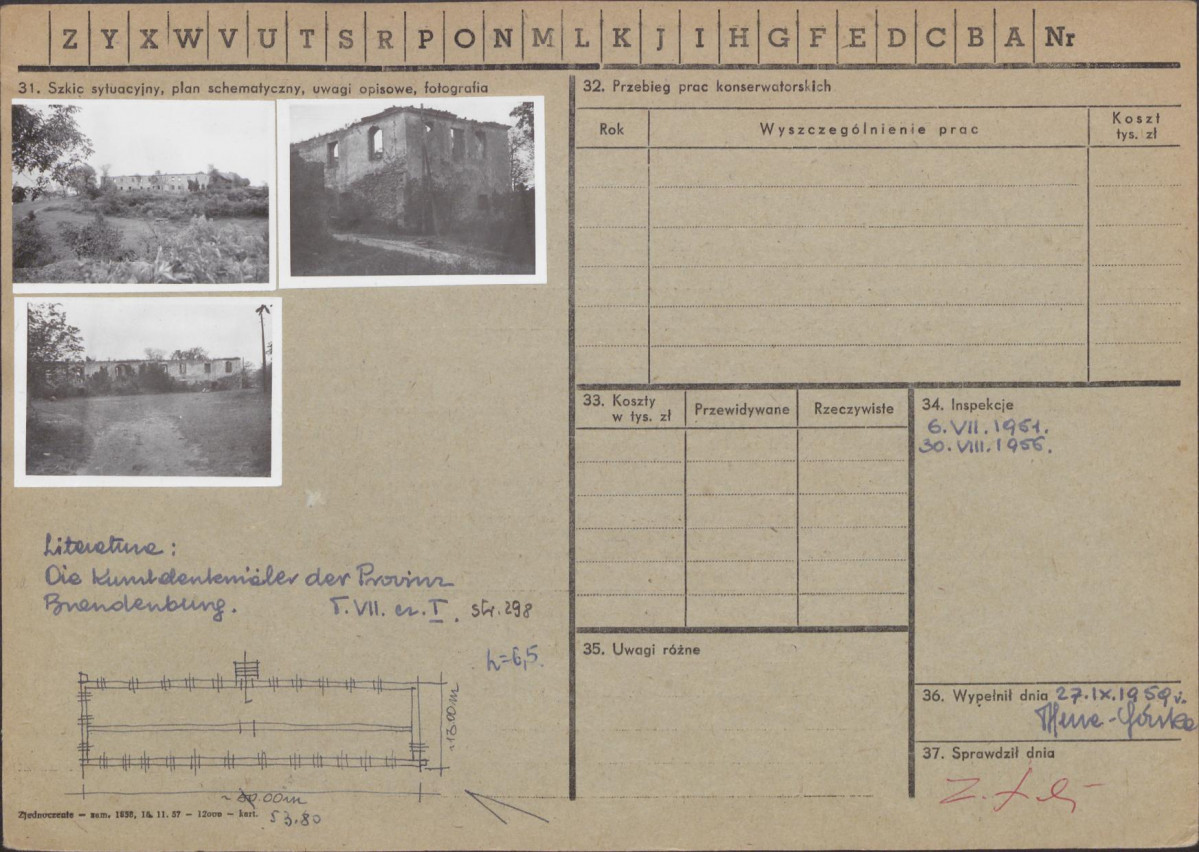 Z Y X W V U T S R P O N M L K J I H G F E D C B A Nr
31. Szkic sytuacyjny, plan schematyczny, uwagi opisowe, fotografia
Literatura:
Die Kunstdenkmäler der Provinz
Brandenburg. T. VII. cz. I. str. 298
h=6,5.
~13.00m
~60.00m
53.80
Zjednoczenie — zam. 1638, 16. 11. 57 — 12000 — kart.
32. Przebieg prac konserwatorskich
Rok
Wyszczególnienie prac
Koszt
tys. zł
33. Koszty
w tys. zł
Przewidywane
Rzeczywiste
34. Inspekcje
6.VII.1951.
30.VIII.1956.
35. Uwagi różne
36. Wypełnił dnia 27.IX.1959 r.
37. Sprawdził dnia